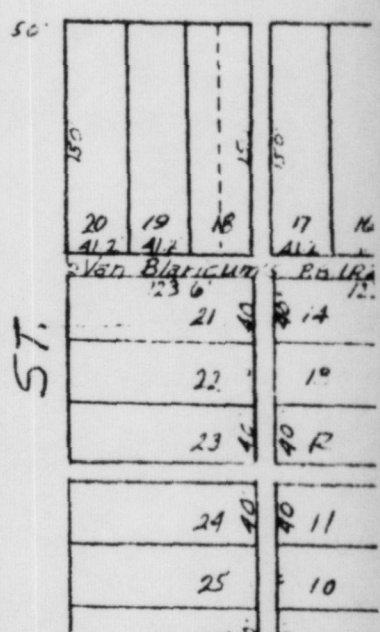 50
150 15 150
20 19 18 17
41.2 41.2 41.2
Van Blaricum's
123 6 12
21 40 40 14
22
23 40 40
ST.
24 40 40 11
25 10